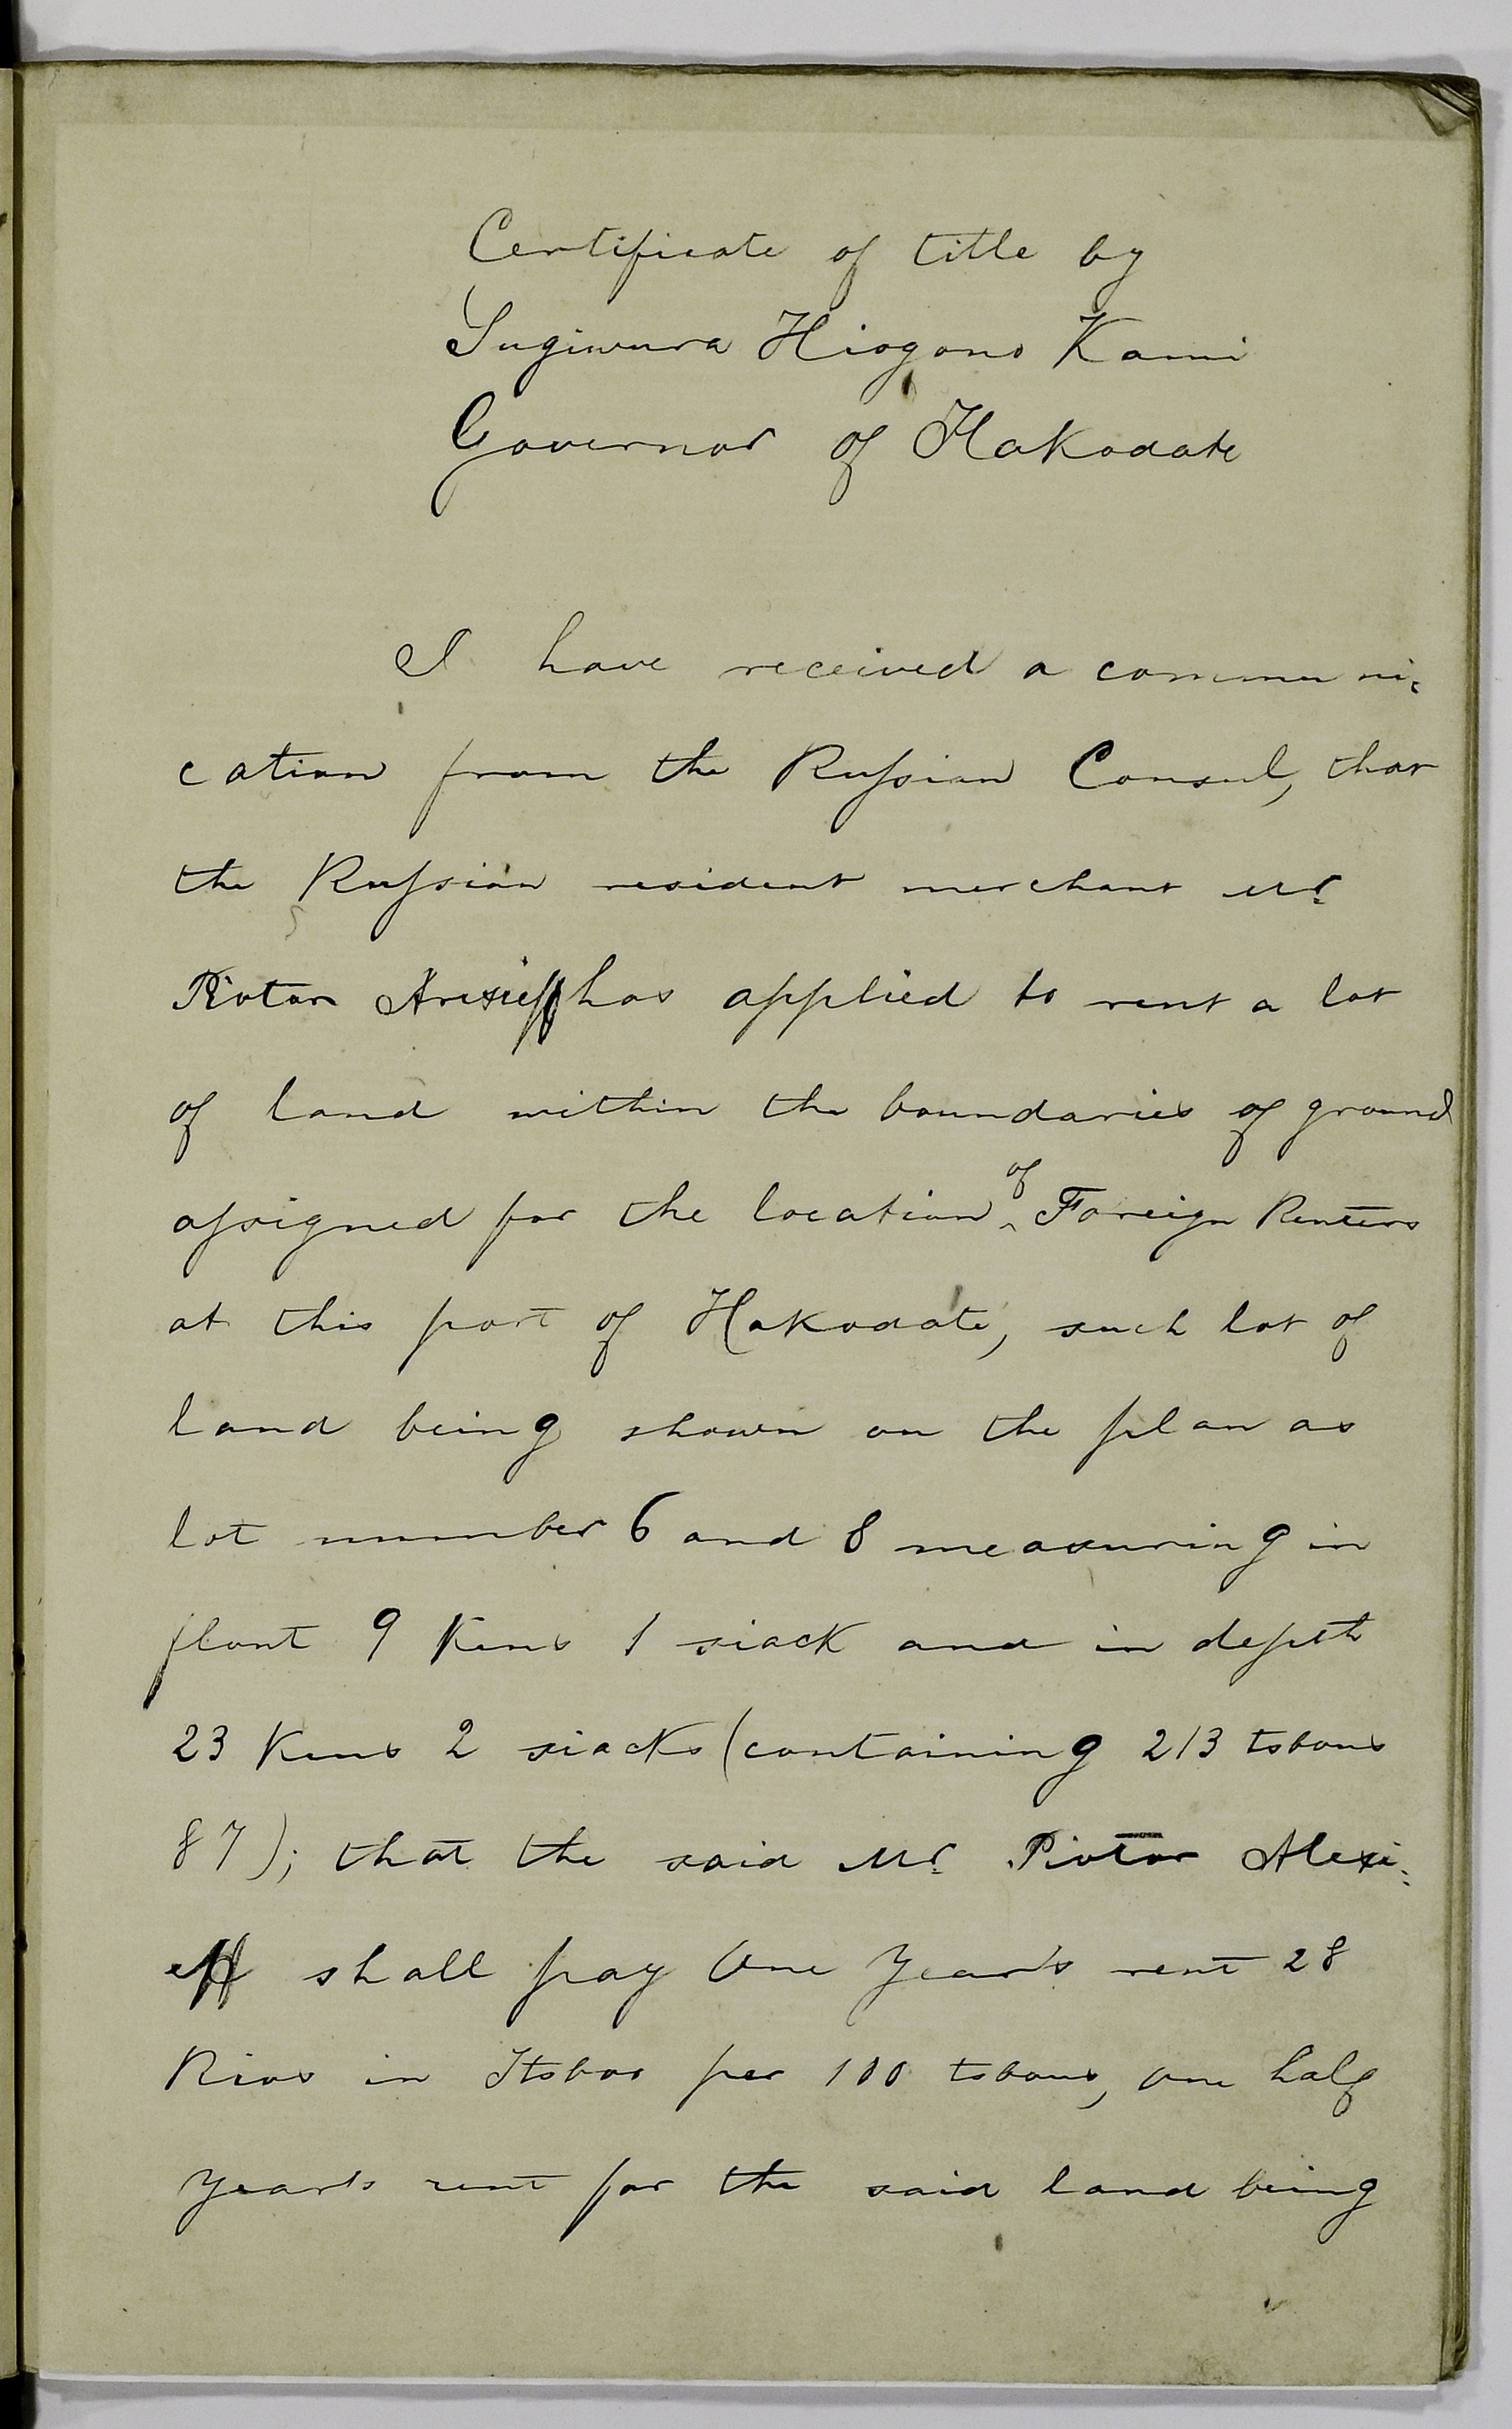 Certificate of title by
Sugiwura Hiogono Kami
Governor of Hakodate
I have received a communi-
cation from the Russian Consul, that
the Russian resident merchant Mr.
Piotor has applied to rent a lot
of land within the boundaries of ground
assigned for the location of Foreign Renters
at this port of Hakodate, such lot of
land being shown on the plan as
lot number 6 and 8 measuring in
flont 9 Kens 1 siack and in depth
23 Kens 2 siacks (containing 213 tsbous
87); that the said Mr. Piotor Alexi-
eff shall pay One Year's rent 28
Rios in Itsbos per 100 tsbous, One half
Year's rent for the said land being